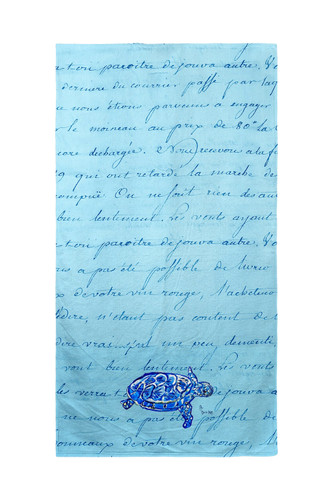 t on paroitre de jouva autre, l'o
derniere du courrier passé par lay
u nous étion parvenus a engager
r le moineau au prix de 80" la
core dechargée. Nous recevon a la f
9 qui ont retardé la marche de
On ne fait rien des au
bien lentement. Les vents ayant
t on paroitre de jouva autre, l'o
us a pas été possible de
x de votre vin rouge, l'acheteur
dire, n'etant pas content de
dire vrai un peu, dementi
vont bien lentement. Les vents
les verra t de jouva a
ne nous a pas été possible de
onneaux de votre vin rouge, l'